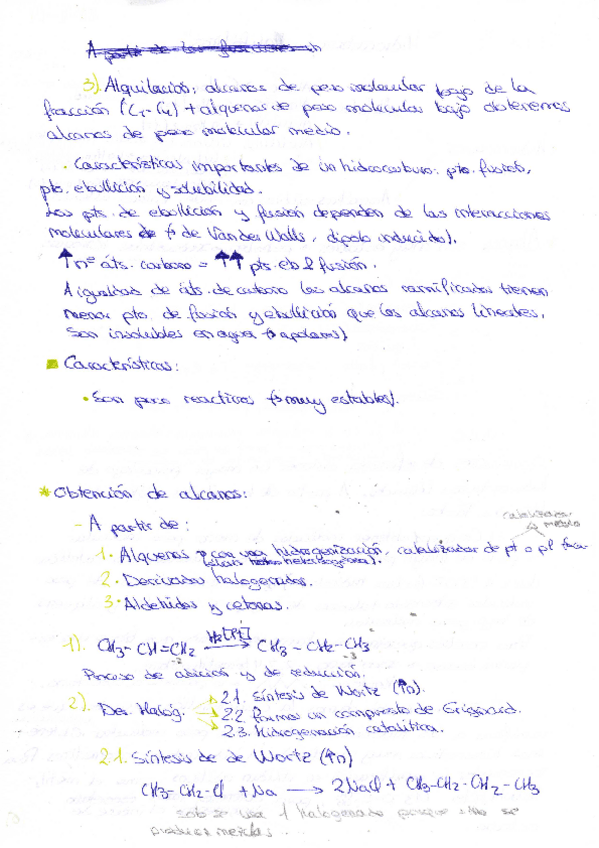 A partir de las funciones un
3) Alquilación: alcanos de peso molecular bajo de la
fracción (C1-C4) + alquenos de peso molecular bajo obtenemos
alcanos de peso molecular medio.
· Características importantes de un hidrocarburo: pto. fusión,
pto. ebullición y solubilidad.
Los pts. de ebullición y fusión dependen de las interacciones
moleculares de Van der Walls, dipolo inducido).
↑nº áts. carbono = ↑↑ pts. eb y fusión.
A igualdad de áts. de carbono los alcanos ramificados tienen
menor pto. de fusión y ebullición que los alcanos lineales.
Son insolubles en agua (→ apolares)
Características:
· Son poco reactivos (→ muy estables).
* Obtención de alcanos:
- A partir de:
catalizador
metálico
1. Alquenos → con una hidrogenización, catalizador de pt o
2. Derivados halogenados.
3. Aldehídos y cetonas.
1). CH3-CH=CH2 H2[Pt] → CH3-CH2-CH3
-2 -3
Proceso de adición y de reducción.
2). Der. Halóg. 2.1. Síntesis de Wortz (↑n).
2.2 Formar un compuesto de Grignard.
2.3. Hidrogenación catalítica.
2.1. Síntesis de de Wortz (↑n)
CH3-CH2-Cl + Na → 2NaCl + CH3-CH2-CH2-CH3
solo se usa 1 halogenado porque sino se
producen mezclas.